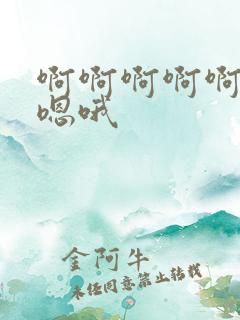 啊啊啊啊啊
嗯哦
金阿牛
未经同意禁止转载